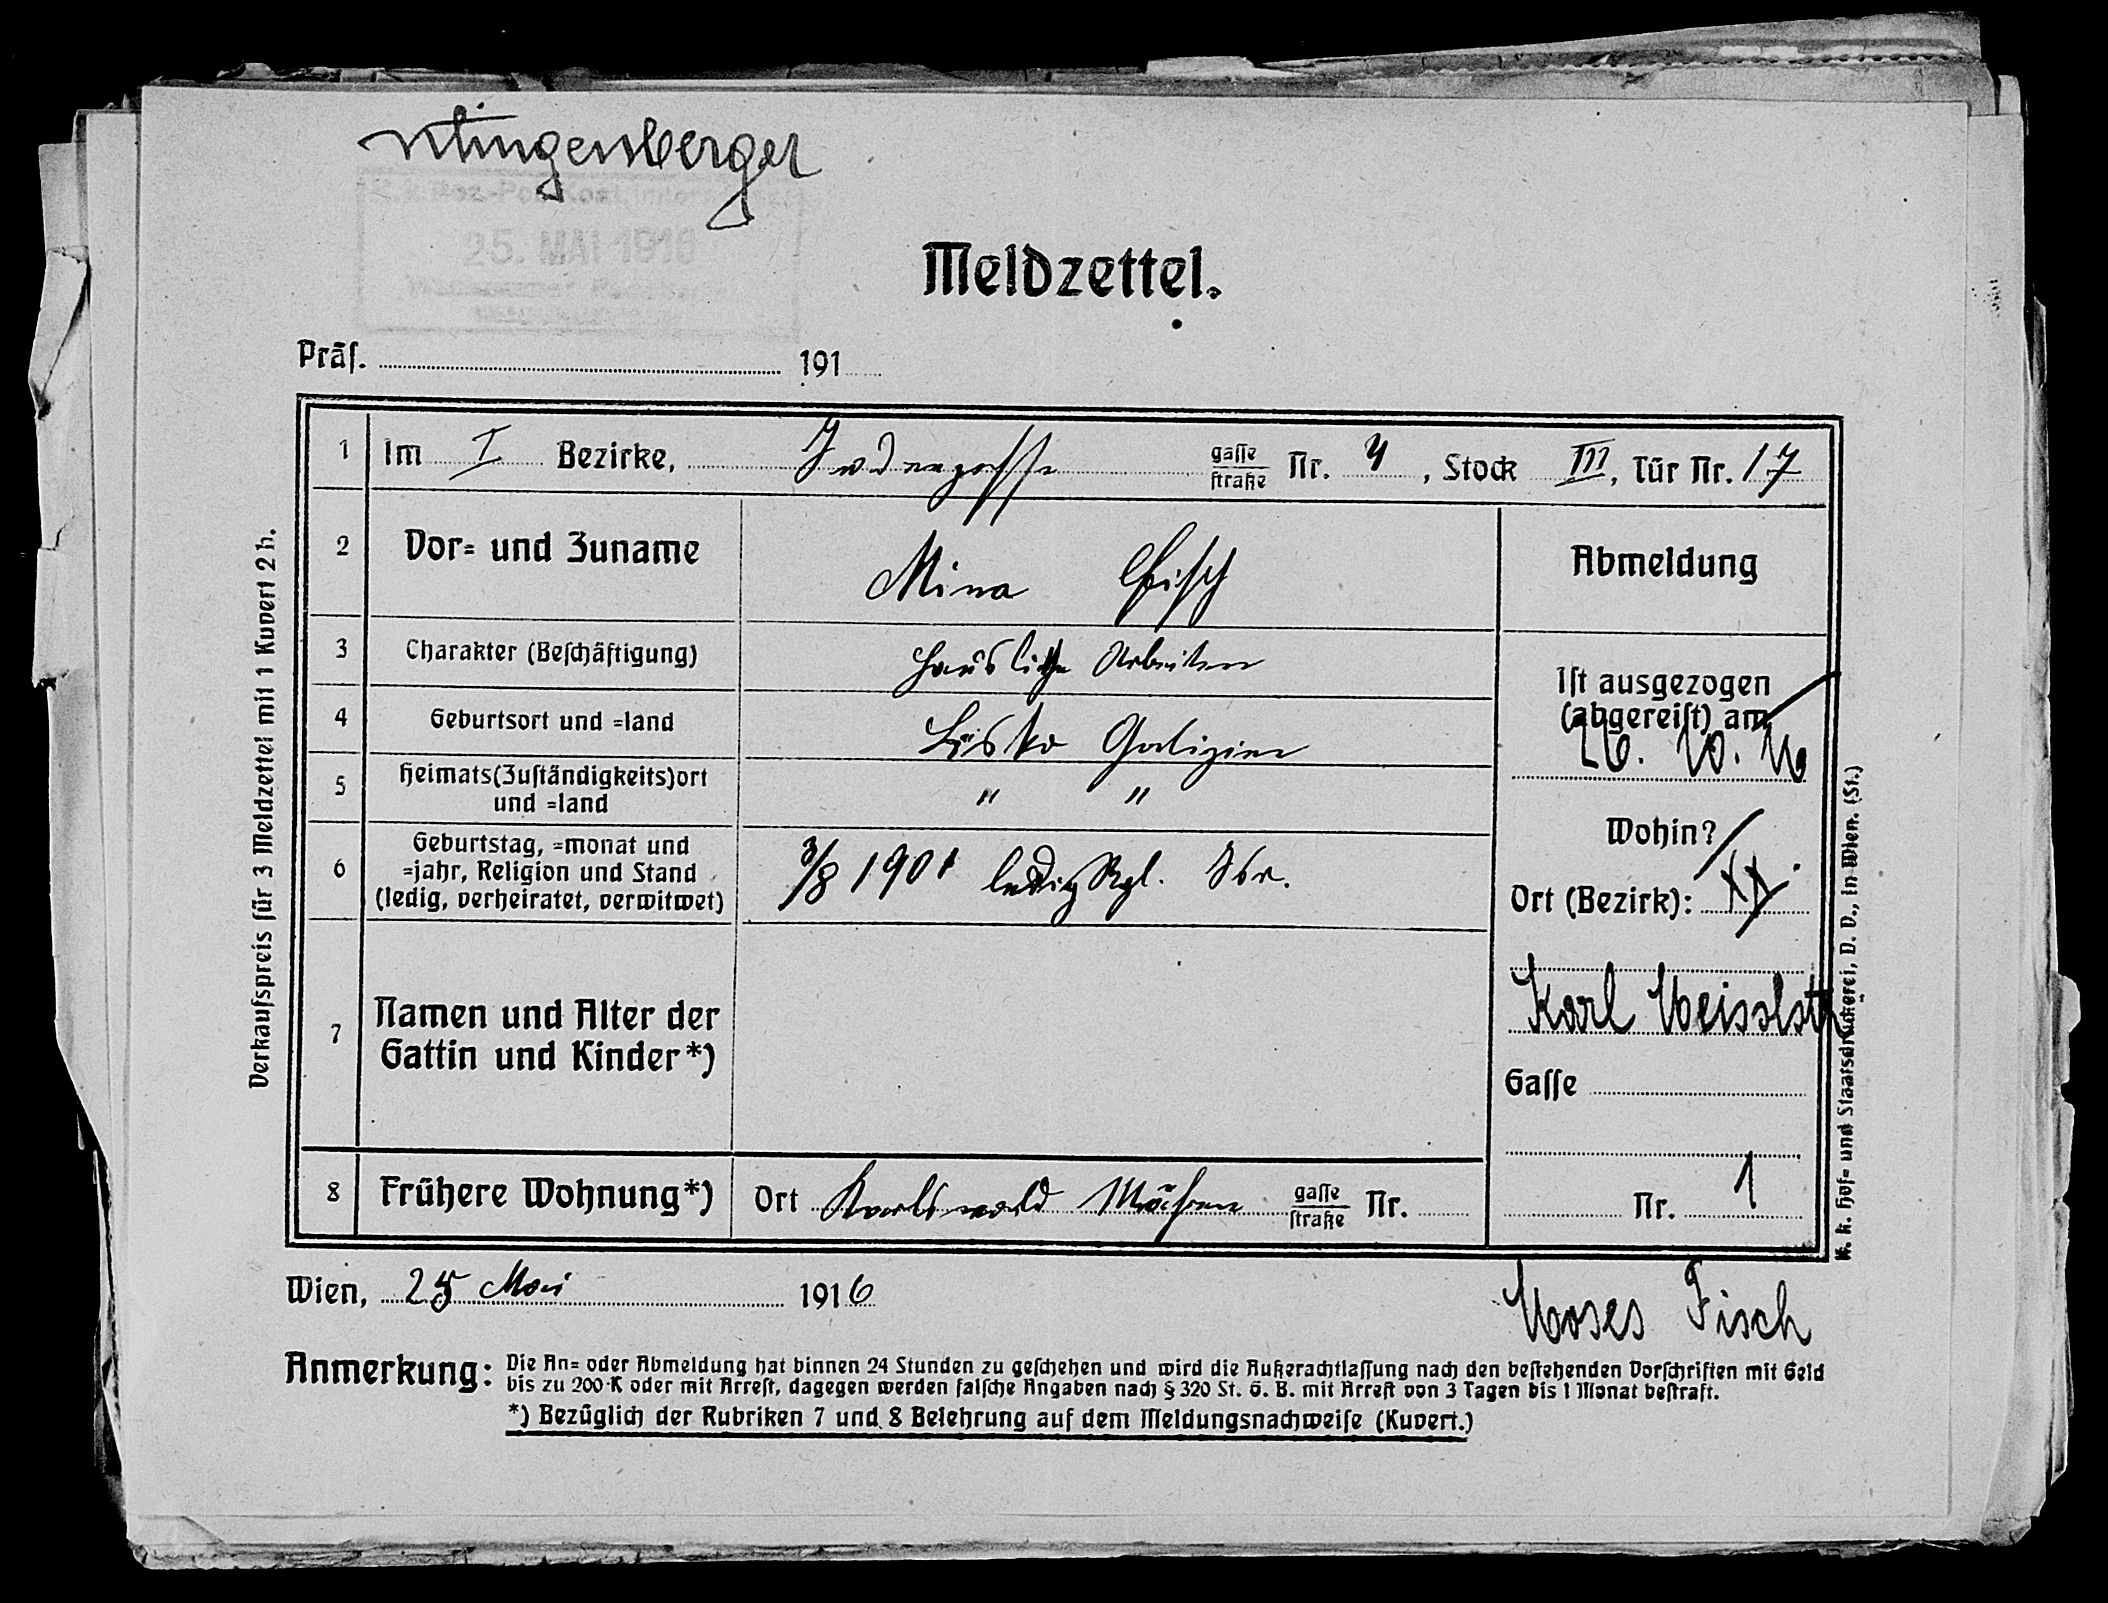 Klingenberger
25. MAI 1916
Meldzettel.
Präs. 191
1 Im I Bezirke, Judengasse gasse/straße Nr. 4, Stock III, Tür Nr. 17
2 Vor- und Zuname Mina Fisch
Abmeldung
3 Charakter (Beschäftigung) häusliche Arbeiten
Ist ausgezogen
(abgereist) am
26. 10. 16
4 Geburtsort und -land Lisko Galizien
5 Heimats(Zuständigkeits)ort
und -land " "
6 Geburtstag, -monat und
-jahr, Religion und Stand
(ledig, verheiratet, verwitwet) 3/8 1901 ledig Rgl. Isr.
Wohin?
Ort (Bezirk): XX.
Karl Meisslstr
Gasse
Nr. 1
7 Namen und Alter der
Gattin und Kinder*)
8 Frühere Wohnung*) Ort Karlswald Mähren gasse/straße Nr.
Wien, 25 Mai 1916
Moses Fisch
Anmerkung: Die An- oder Abmeldung hat binnen 24 Stunden zu geschehen und wird die Außerachtlassung nach den bestehenden Vorschriften mit Geld
bis zu 200 K oder mit Arrest, dagegen werden falsche Angaben nach § 320 St. G. B. mit Arrest von 3 Tagen bis 1 Monat bestraft.
*) Bezüglich der Rubriken 7 und 8 Belehrung auf dem Meldungsnachweise (Kuvert.)
Verkaufspreis für 3 Meldzettel mit 1 Kuvert 2 h.
K. k. Hof- und Staatsdruckerei, D. V., in Wien. (St.)